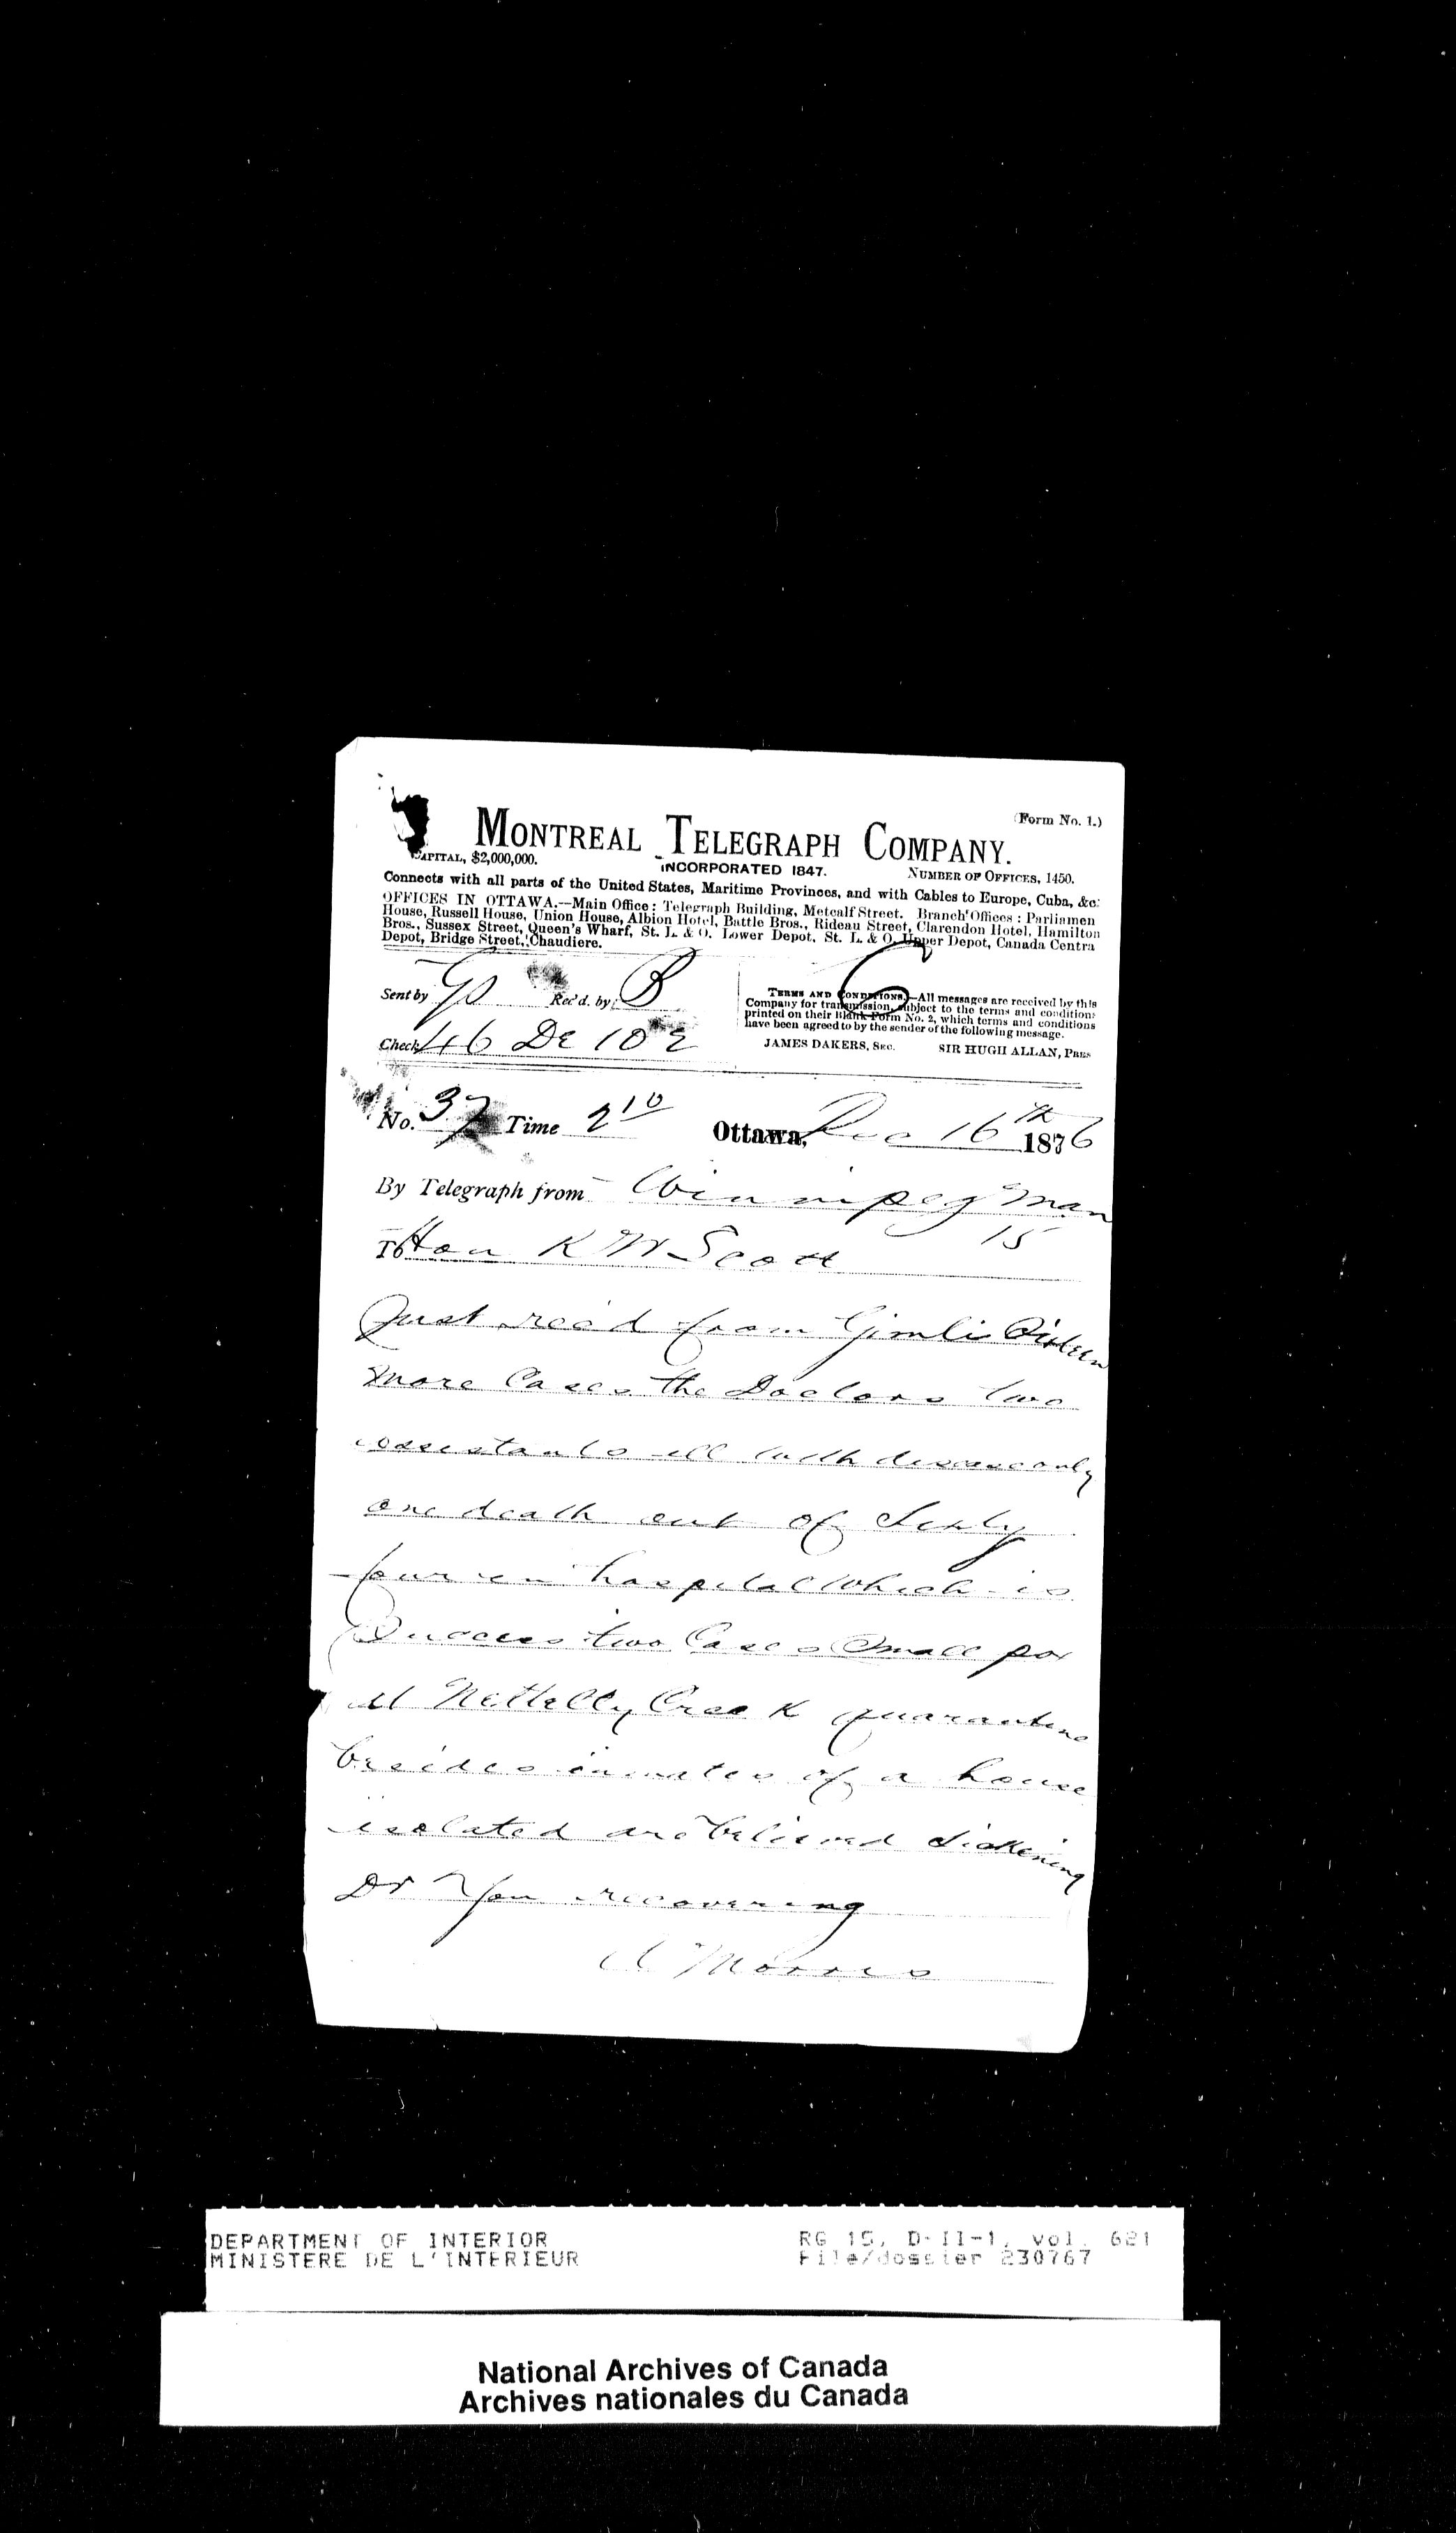 (Form No. 1.)
MONTREAL TELEGRAPH COMPANY.
CAPITAL, $2,000,000. INCORPORATED 1847. NUMBER OF OFFICES, 1450.
Connects with all parts of the United States, Maritime Provinces, and with Cables to Europe, Cuba, &c.
OFFICES IN OTTAWA.—Main Office: Telegraph Building, Metcalf Street. Branch Offices: Parliamen
House, Russell House, Union House, Albion Hotel, Battle Bros., Rideau Street, Clarendon Hotel, Hamilton
Bros., Sussex Street, Queen's Wharf, St. L. & O. Lower Depot, St. L. & O. Upper Depot, Canada Centra
Depot, Bridge Street, Chaudiere.
Sent by Rec'd. by B
Check 46 DE 10
TERMS AND CONDITIONS.—All messages are received by this
Company for transmission, subject to the terms and conditions
printed on their Blank Form No. 2, which terms and conditions
have been agreed to by the sender of the following message.
JAMES DAKERS, SEC. SIR HUGH ALLAN, PRES
No. 37 Time 2 10 Ottawa, Dec 16th 1876
By Telegraph from Winnipeg Man
15
To Hon R W Scott
Just rec'd from Gimli
more Cases the Doctors two
assistants ill with disease only
one death out of Sixty
four in hospital which is
Success two Cases Small pox
at Nettelly Creek quarantine
besides inmates of a house
isolated are believed sickening
Dr recovering
A Morris
DEPARTMENT OF INTERIOR
MINISTERE DE L'INTERIEUR
RG 15, D-II-1, vol. 621
File/dossier 230767
National Archives of Canada
Archives nationales du Canada